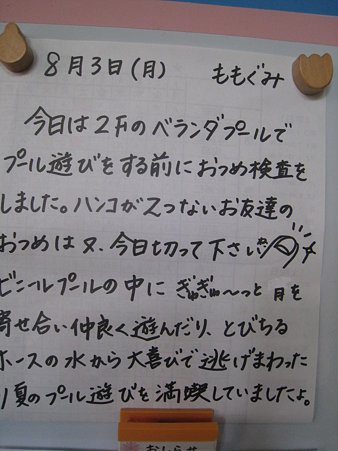 8月3日(月) ももぐみ
今日は2Fのベランダプールで
プール遊びをする前におつめ検査を
しました。ハンコが2つないお友達の
おつめは又、今日切って下さいね
ビニールプールの中にぎゅぎゅ〜っと肩を
寄せ合い仲良く遊んだり、とびちる
ホースの水から大喜びで逃げまわった
り夏のプール遊びを満喫していましたよ。
おしらせ